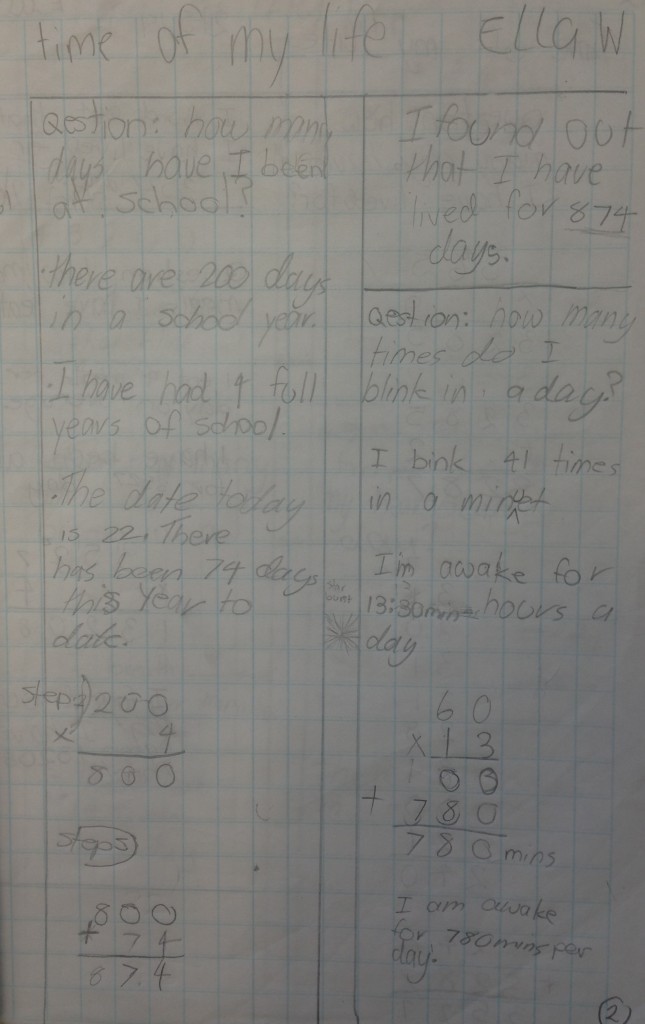 time of my life ELLA W
Qestion: how many
days have I been
at school?
• there are 200 days
in a school year.
• I have had 4 full
years of school.
• The date today
is 22. There
has been 74 days
this year to
date.
step 1) 200
x 4
800
steps
800
+ 74
874
I found out
that I have
lived for 874
days.
Qestion: how many
times do I
blink in a day?
I bink 41 times
in a minet
I'm awake for
13:30mins hours a
day
60
x 13
00
+ 780
780 mins
I am awake
for 780mins per
day.
2